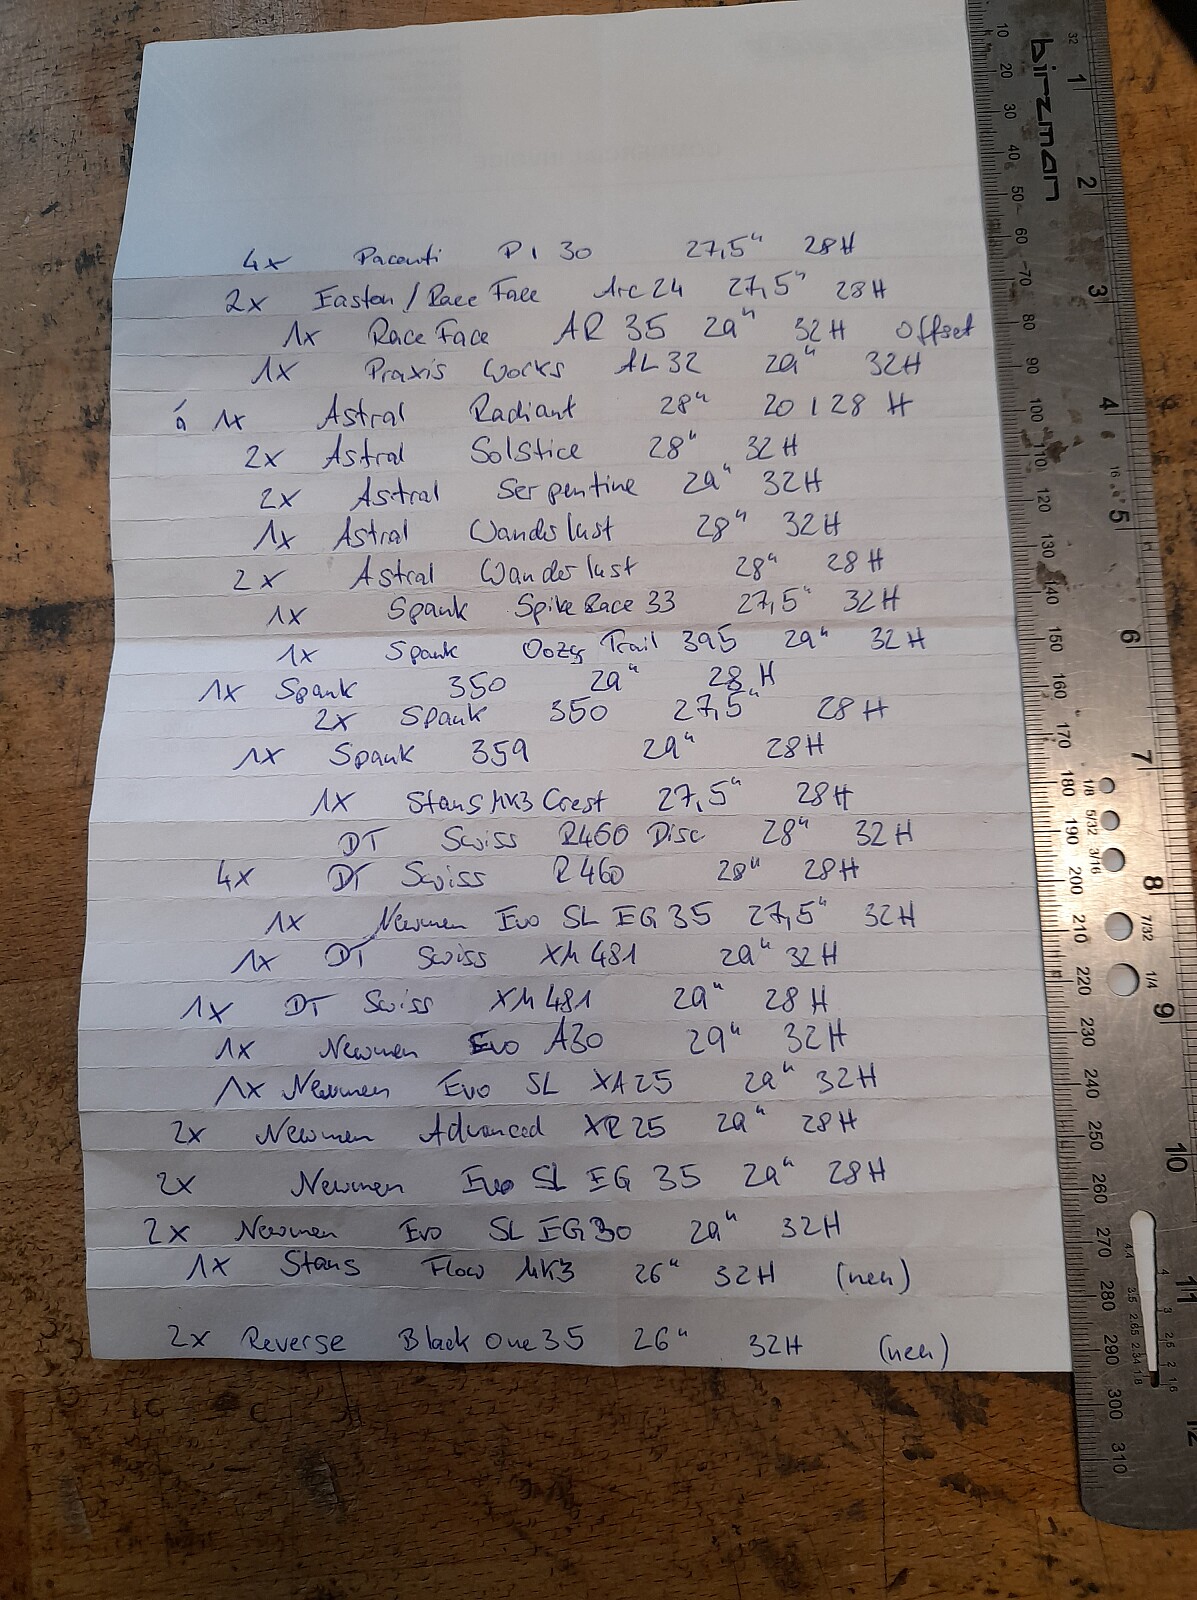 4x Pacenti P I 30 27,5" 28H
2x Easton / Race Face Arc 24 27,5" 28H
1x Race Face AR 35 29" 32H Offset
1x Praxis Works AL 32 29" 32H
á 1x Astral Radiant 28" 20 / 28 H
2x Astral Solstice 28" 32H
2x Astral Serpentine 29" 32H
1x Astral Wanderlust 28" 32H
2x Astral Wanderlust 28" 28H
1x Spank Spike Race 33 27,5" 32H
1x Spank Oozy Trail 395 29" 32H
1x Spank 350 29" 28H
2x Spank 350 27,5" 28H
1x Spank 359 29" 28H
1x Stans MK3 Crest 27,5" 28H
DT Swiss R460 Disc 28" 32H
4x DT Swiss R460 28" 28H
1x Newmen Evo SL EG 35 27,5" 32H
1x DT Swiss XM 481 29" 32H
1x DT Swiss XM 481 29" 28H
1x Newmen Evo A30 29" 32H
1x Newmen Evo SL XA 25 29" 32H
2x Newmen Advanced XR 25 29" 28H
2x Newmen Evo SL EG 35 29" 28H
2x Newmen Evo SL EG 30 29" 32H
1x Stans Flow MK3 26" 32H (neu)
2x Reverse Black One 35 26" 32H (neu)
birzman
32
1 2 3 4 5 6 7 8 9 10 11 12
10 20 30 40 50 60 70 80 90 100 110 120 130 140 150 160 170 180 190 200 210 220 230 240 250 260 270 280 290 300 310
16
1/8 5/32 3/16 7/32 1/4